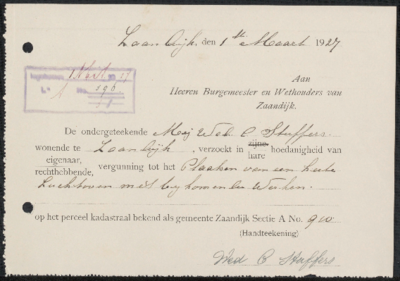 Zaandijk, den 1ste Maart 1927
Aan
Heeren Burgemeester en Wethouders van
Zaandijk.
De ondergeteekende Mej Wed C Staffers
wonende te Zaandijk, verzoekt in zijne hare hoedanigheid van
eigenaar, rechthebbende, vergunning tot het Plaatsen van een
met bijkomende Werken.
op het perceel kadastraal bekend als gemeente Zaandijk Sectie A No. 900
(Handteekening)
Wed C. Staffers